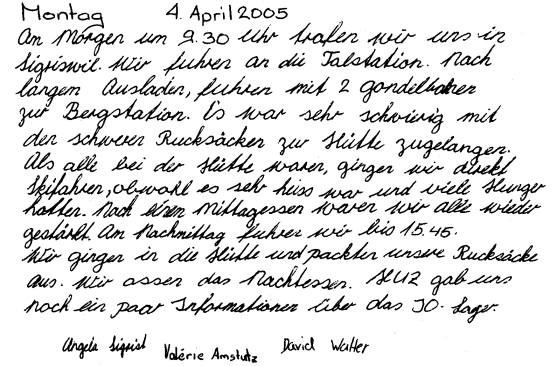 Montag 4. April 2005
Am Morgen um 9.30 Uhr trafen wir uns in
Sigriswil. Wir fuhren an die Talstation. Nach
langem Ausladen, fuhren mit 2 Gondelbahnen
zur Bergstation. Es war sehr schwierig mit
den schweren Rucksäcken zur Hütte zugelangen.
Als alle bei der Hütte waren, gingen wir direkt
Skifahren, obwohl es sehr heiss war und viele Hunger
hatten. Nach einem Mittagessen waren wir alle wieder
gestärkt. Am Nachmittag fuhren wir bis 15.45.
Wir gingen in die Hütte und packten unsere Rucksäcke
aus. Wir assen das Nachtessen. gab uns
noch ein paar Informationen über das JO-Lager.
Angela Sigrist Valérie Amstutz David Walter